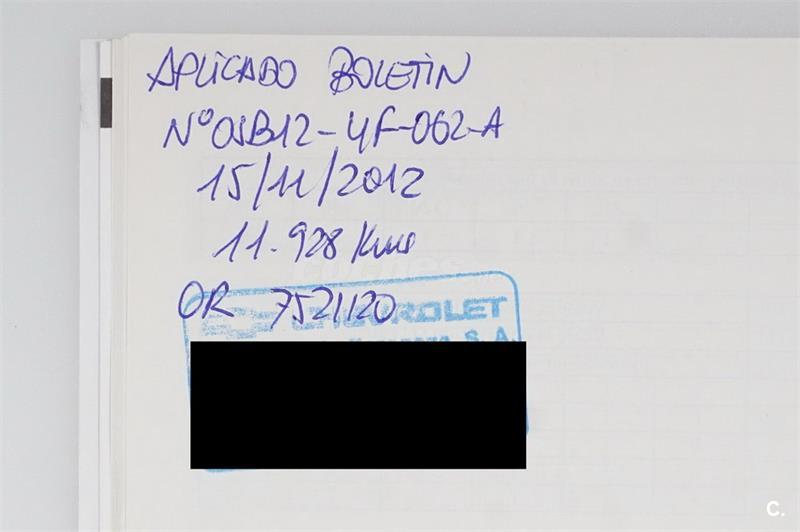 APLICADO BOLETIN
Nº OSB12-4F-062-A
15/11/2012
11.928 Kms
OR 7521120
CHEVROLET
S. A.
C.